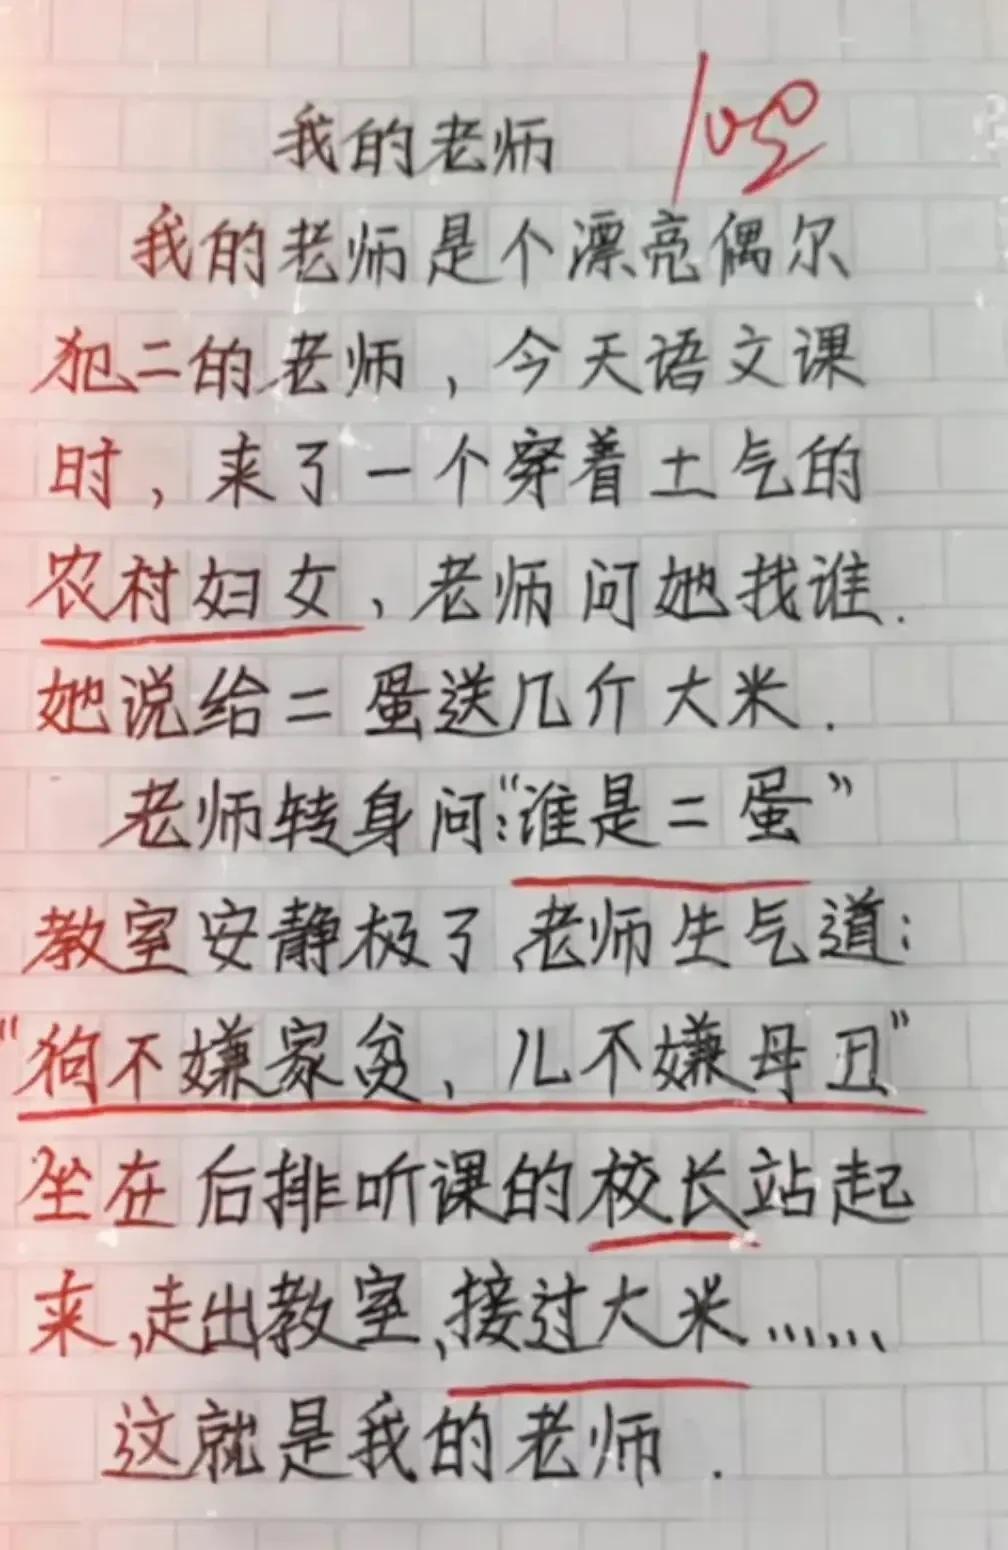 我的老师
我的老师是个漂亮偶尔
犯二的老师，今天语文课
时，来了一个穿着土气的
农村妇女，老师问她找谁.
她说给二蛋送几斤大米.
老师转身问:“谁是二蛋”
教室安静极了,老师生气道:
“狗不嫌家贫，儿不嫌母丑”
坐在后排听课的校长站起
来,走出教室,接过大米......
这就是我的老师.